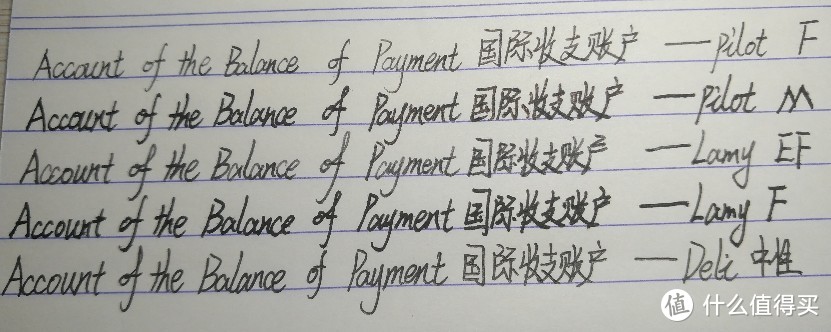 Account of the Balance of Payment 国际收支账户 — Pilot F
Account of the Balance of Payment 国际收支账户 — Pilot M
Account of the Balance of Payment 国际收支账户 — Lamy EF
Account of the Balance of Payment 国际收支账户 — Lamy F
Account of the Balance of Payment 国际收支账户 — Deli 中性
值 什么值得买